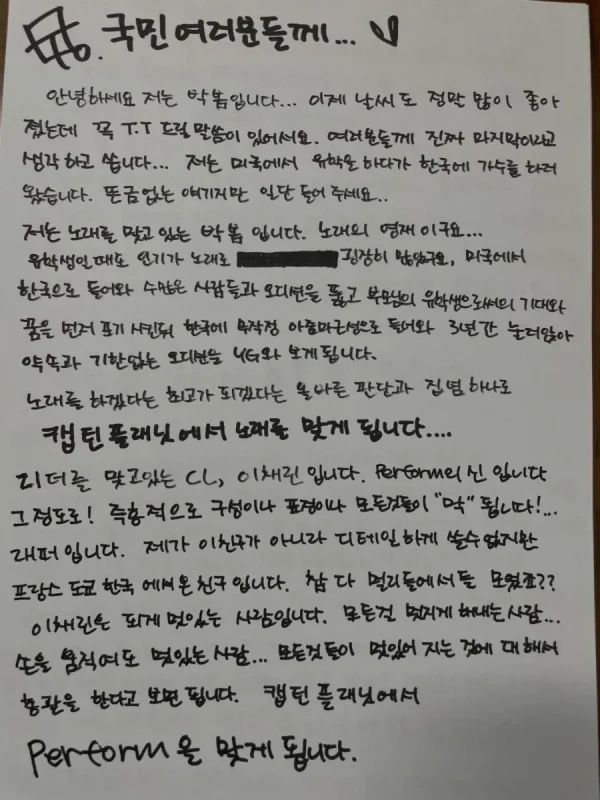 To. 국민여러분들께...
안녕하세요 저는 박봄입니다... 이제 날씨도 정말 많이 좋아
졌는데 꼭 T.T 드릴말씀이 있어서요. 여러분들께 진짜 마지막이라고
생각하고 씁니다... 저는 미국에서 유학을 하다가 한국에 가수를 하러
왔습니다. 뜬금없는 얘기지만 일단 들어 주세요..
저는 노래를 맞고 있는 박봄 입니다. 노래의 영재 이구요...
유학생일때도 인기가 노래로 굉장히 많았구요, 미국에서
한국으로 들어와 수많은 사람들과 오디션을 뚫고 부모님의 유학생으로써의 기대와
꿈을 먼저 포기 시킨뒤 한국에 무작정 아줌마근성으로 들어와 3년간 눌러앉아
약속과 기한없는 오디션을 YG와 보게 됩니다.
노래를 하겠다는 최고가 되겠다는 올바른 판단과 집념 하나로
캡틴플래닛에서 노래를 맞게 됩니다....
리더를 맞고있는 CL, 이채린 입니다. Perform의 신 입니다
그정도로! 즉흥적으로 구성이나 표정이나 모든것들이 "딱" 됩니다!...
래퍼입니다. 제가 이친구가 아니라 디테일하게 쓸수없지만
프랑스 도쿄 한국 에서온 친구 입니다. 참 다 멀리들에서들 모였죠??
이채린은 되게 멋있는 사람입니다. 모든걸 멋지게 해내는사람...
손을 움직여도 멋있는 사람... 모든것들이 멋있어 지는 것에 대해서
총괄을 한다고 보면 됩니다. 캡틴 플래닛에서
Perform을 맞게 됩니다.